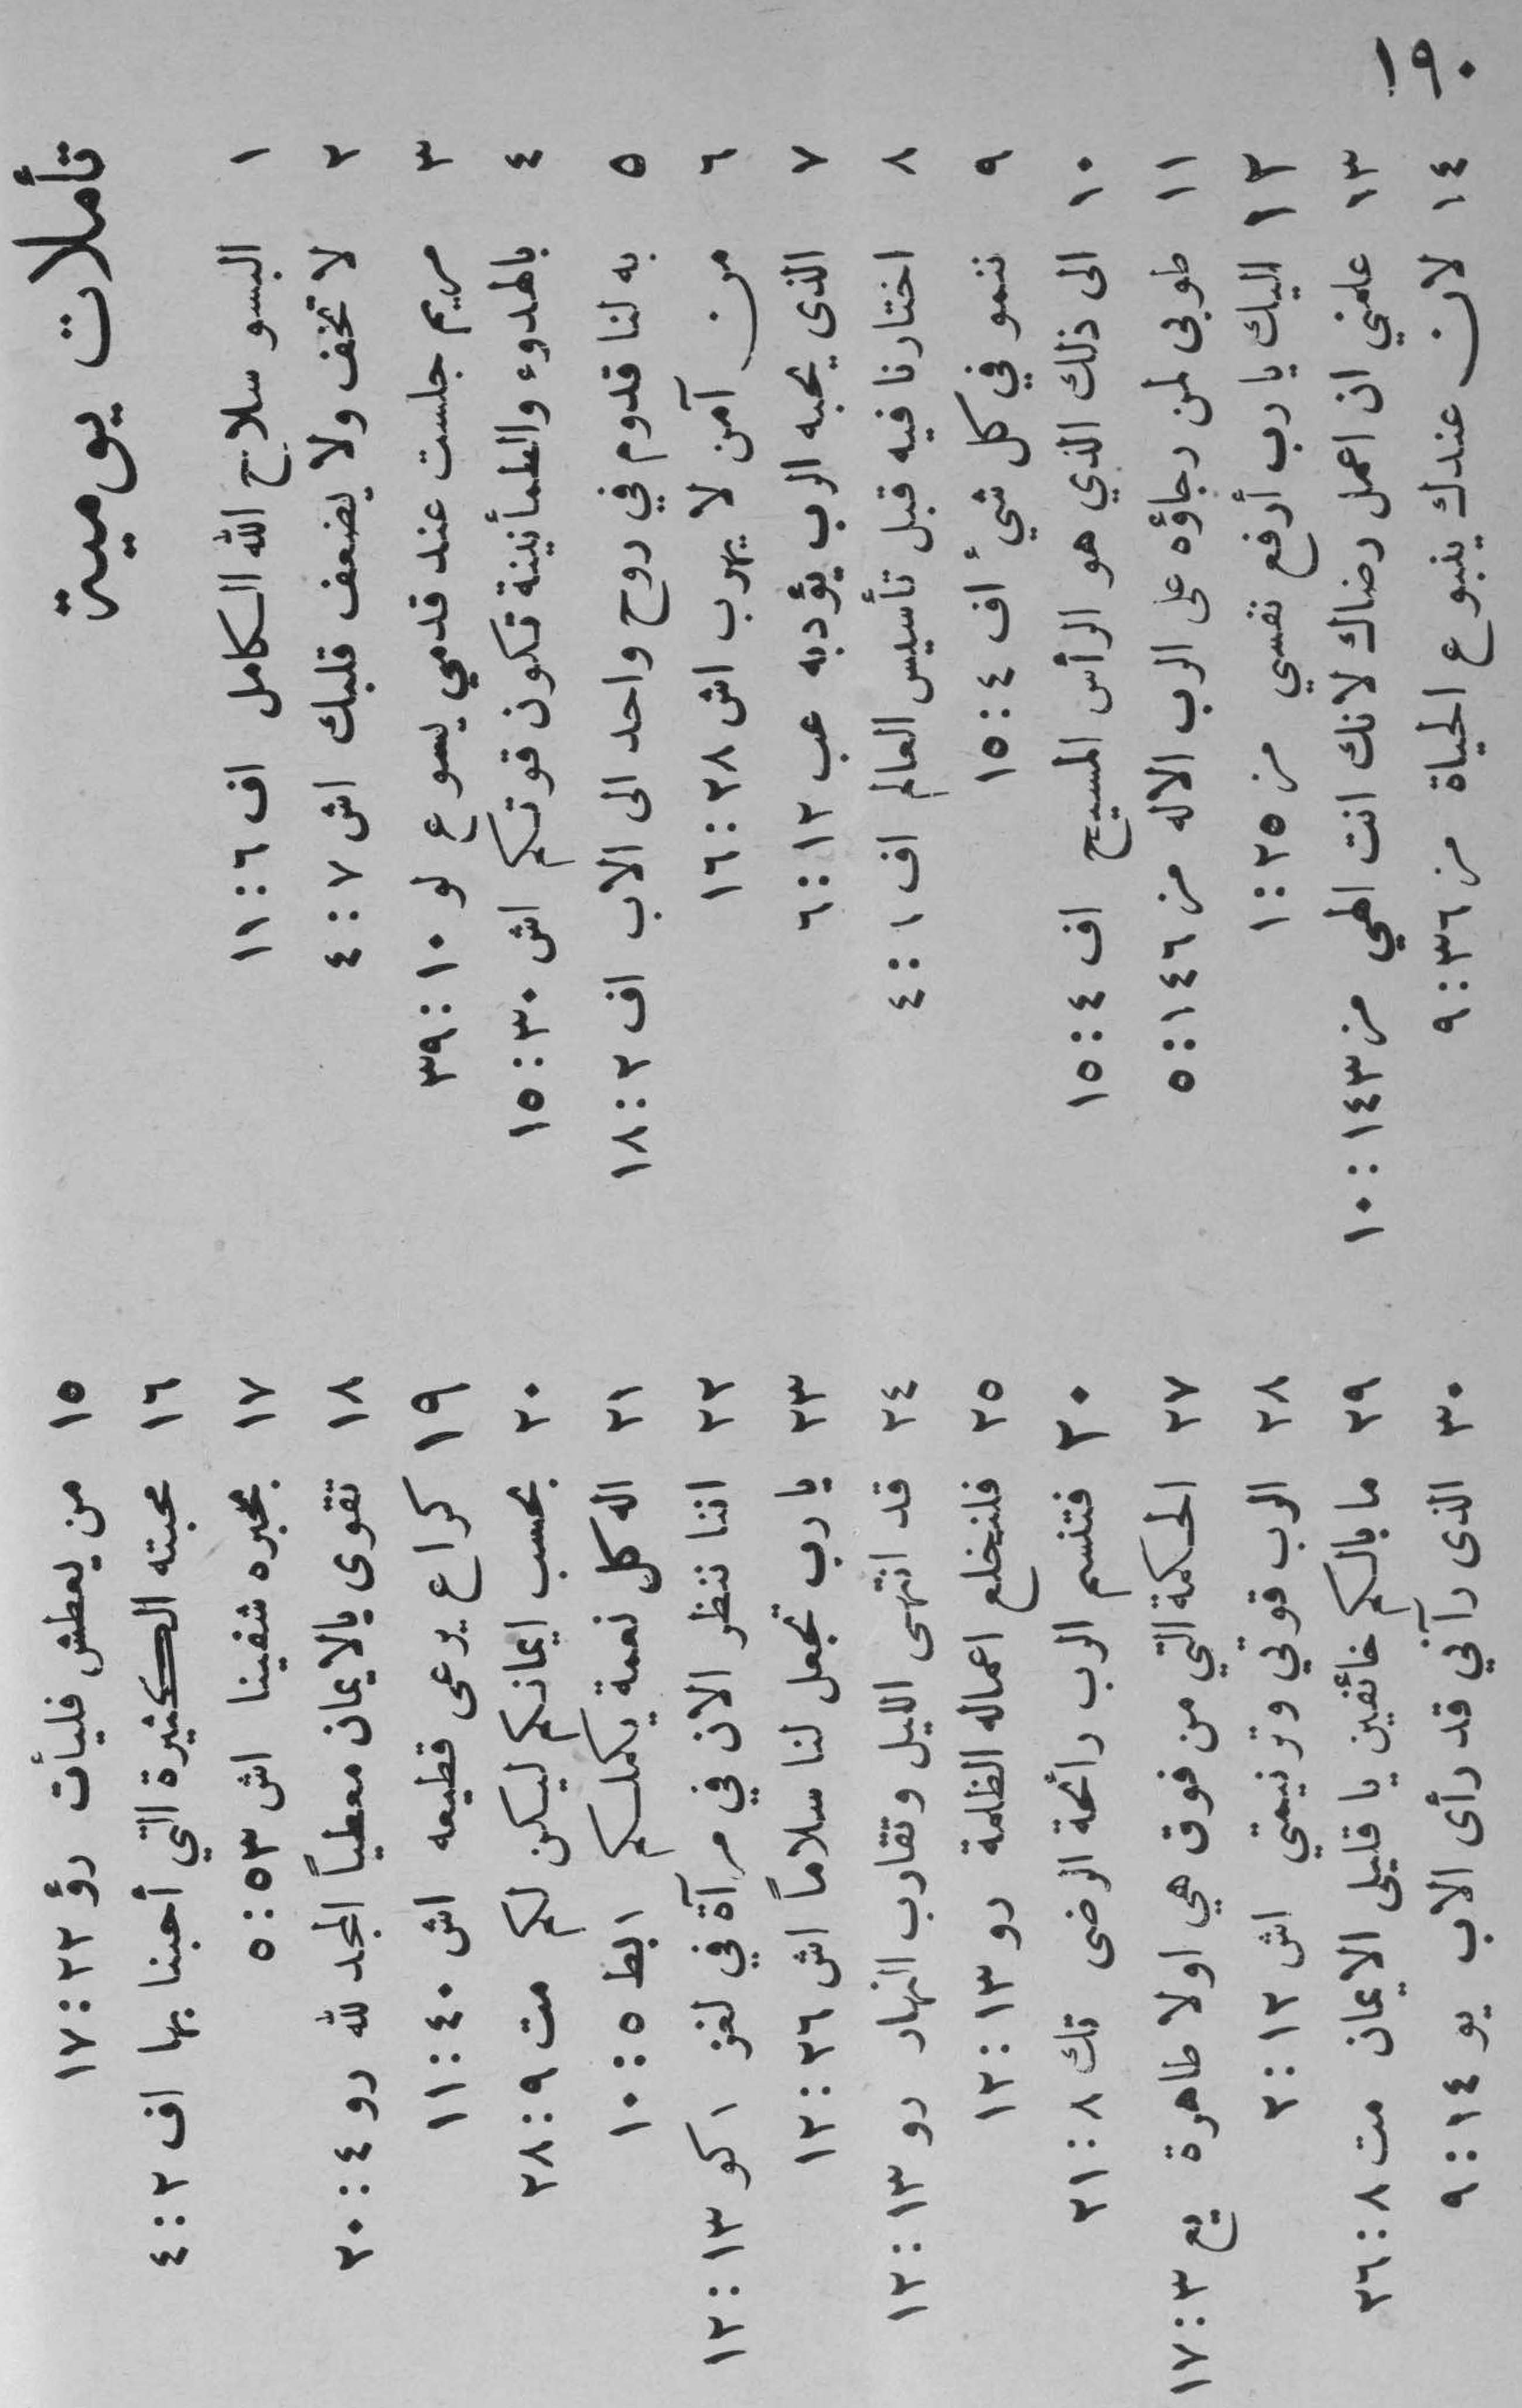 تأملات يومية
١ البسو سلاح الله الكامل اف ٦ : ١١
٢ لا تخف ولا يضعف قلبك اش ٧ : ٤
٣ مريم جلست عند قدمي يسوع لو ١٠ : ٣٩
٤ بالهدوء والطمأنينة تكون قوتكم اش ٣٠ : ١٥
٥ به لنا قدوم في روح واحد الى الاب اف ٢ : ١٨
٦ من آمن لا يهرب اش ٢٨ : ١٦
٧ الذى يحبه الرب يؤدبه عب ١٢ : ٦
٨ اختارنا فيه قبل تأسيس العالم اف ١ : ٤
٩ ننمو في كل شيء اف ٤ : ١٥
١٠ الى ذلك الذي هو الرأس المسيح اف ٤ : ١٥
١١ طوبى لمن رجاؤه على الرب الاله مز ١٤٦ : ٥
١٢ اليك يا رب أرفع نفسي مز ٢٥ : ١
١٣ علمني ان اعمل رضاك لانك انت الهي مز ١٤٣ : ١٠
١٤ لان عندك ينبوع الحياة مز ٣٦ : ٩
١٥ من يعطش فليأت رؤ ٢٢ : ١٧
١٦ محبته الكثيرة التي أحبنا بها اف ٢ : ٤
١٧ بحبره شفينا اش ٥٣ : ٥
١٨ تقوى بالايمان معطياً المجد لله رو ٤ : ٢٠
١٩ كراع يرعى قطيعه اش ٤٠ : ١١
٢٠ بحسب ايمانكم ليكن لكم مت ٩ : ٢٨
٢١ اله كل نعمة يكملكم ١بط ٥ : ١٠
٢٢ اننا ننظر الان في مرآة في لغز ١كو ١٣ : ١٢
٢٣ يا رب تجعل لنا سلاماً اش ٢٦ : ١٢
٢٤ قد انتهى الليل وتقارب النهار رو ١٣ : ١٢
٢٥ فلنخلع اعماله الظلمة رو ١٣ : ١٢
٢٠ فتنسم الرب رائحة الرضى تك ٨ : ٢١
٢٧ الحكمة التي من فوق هي اولا طاهرة يع ٣ : ١٧
٢٨ الرب قوتي وترنيمتي اش ١٢ : ٢
٢٩ ما بالكم خائفين يا قليلى الايمان مت ٨ : ٢٦
٣٠ الذى رآني قد رأى الاب يو ١٤ : ٩